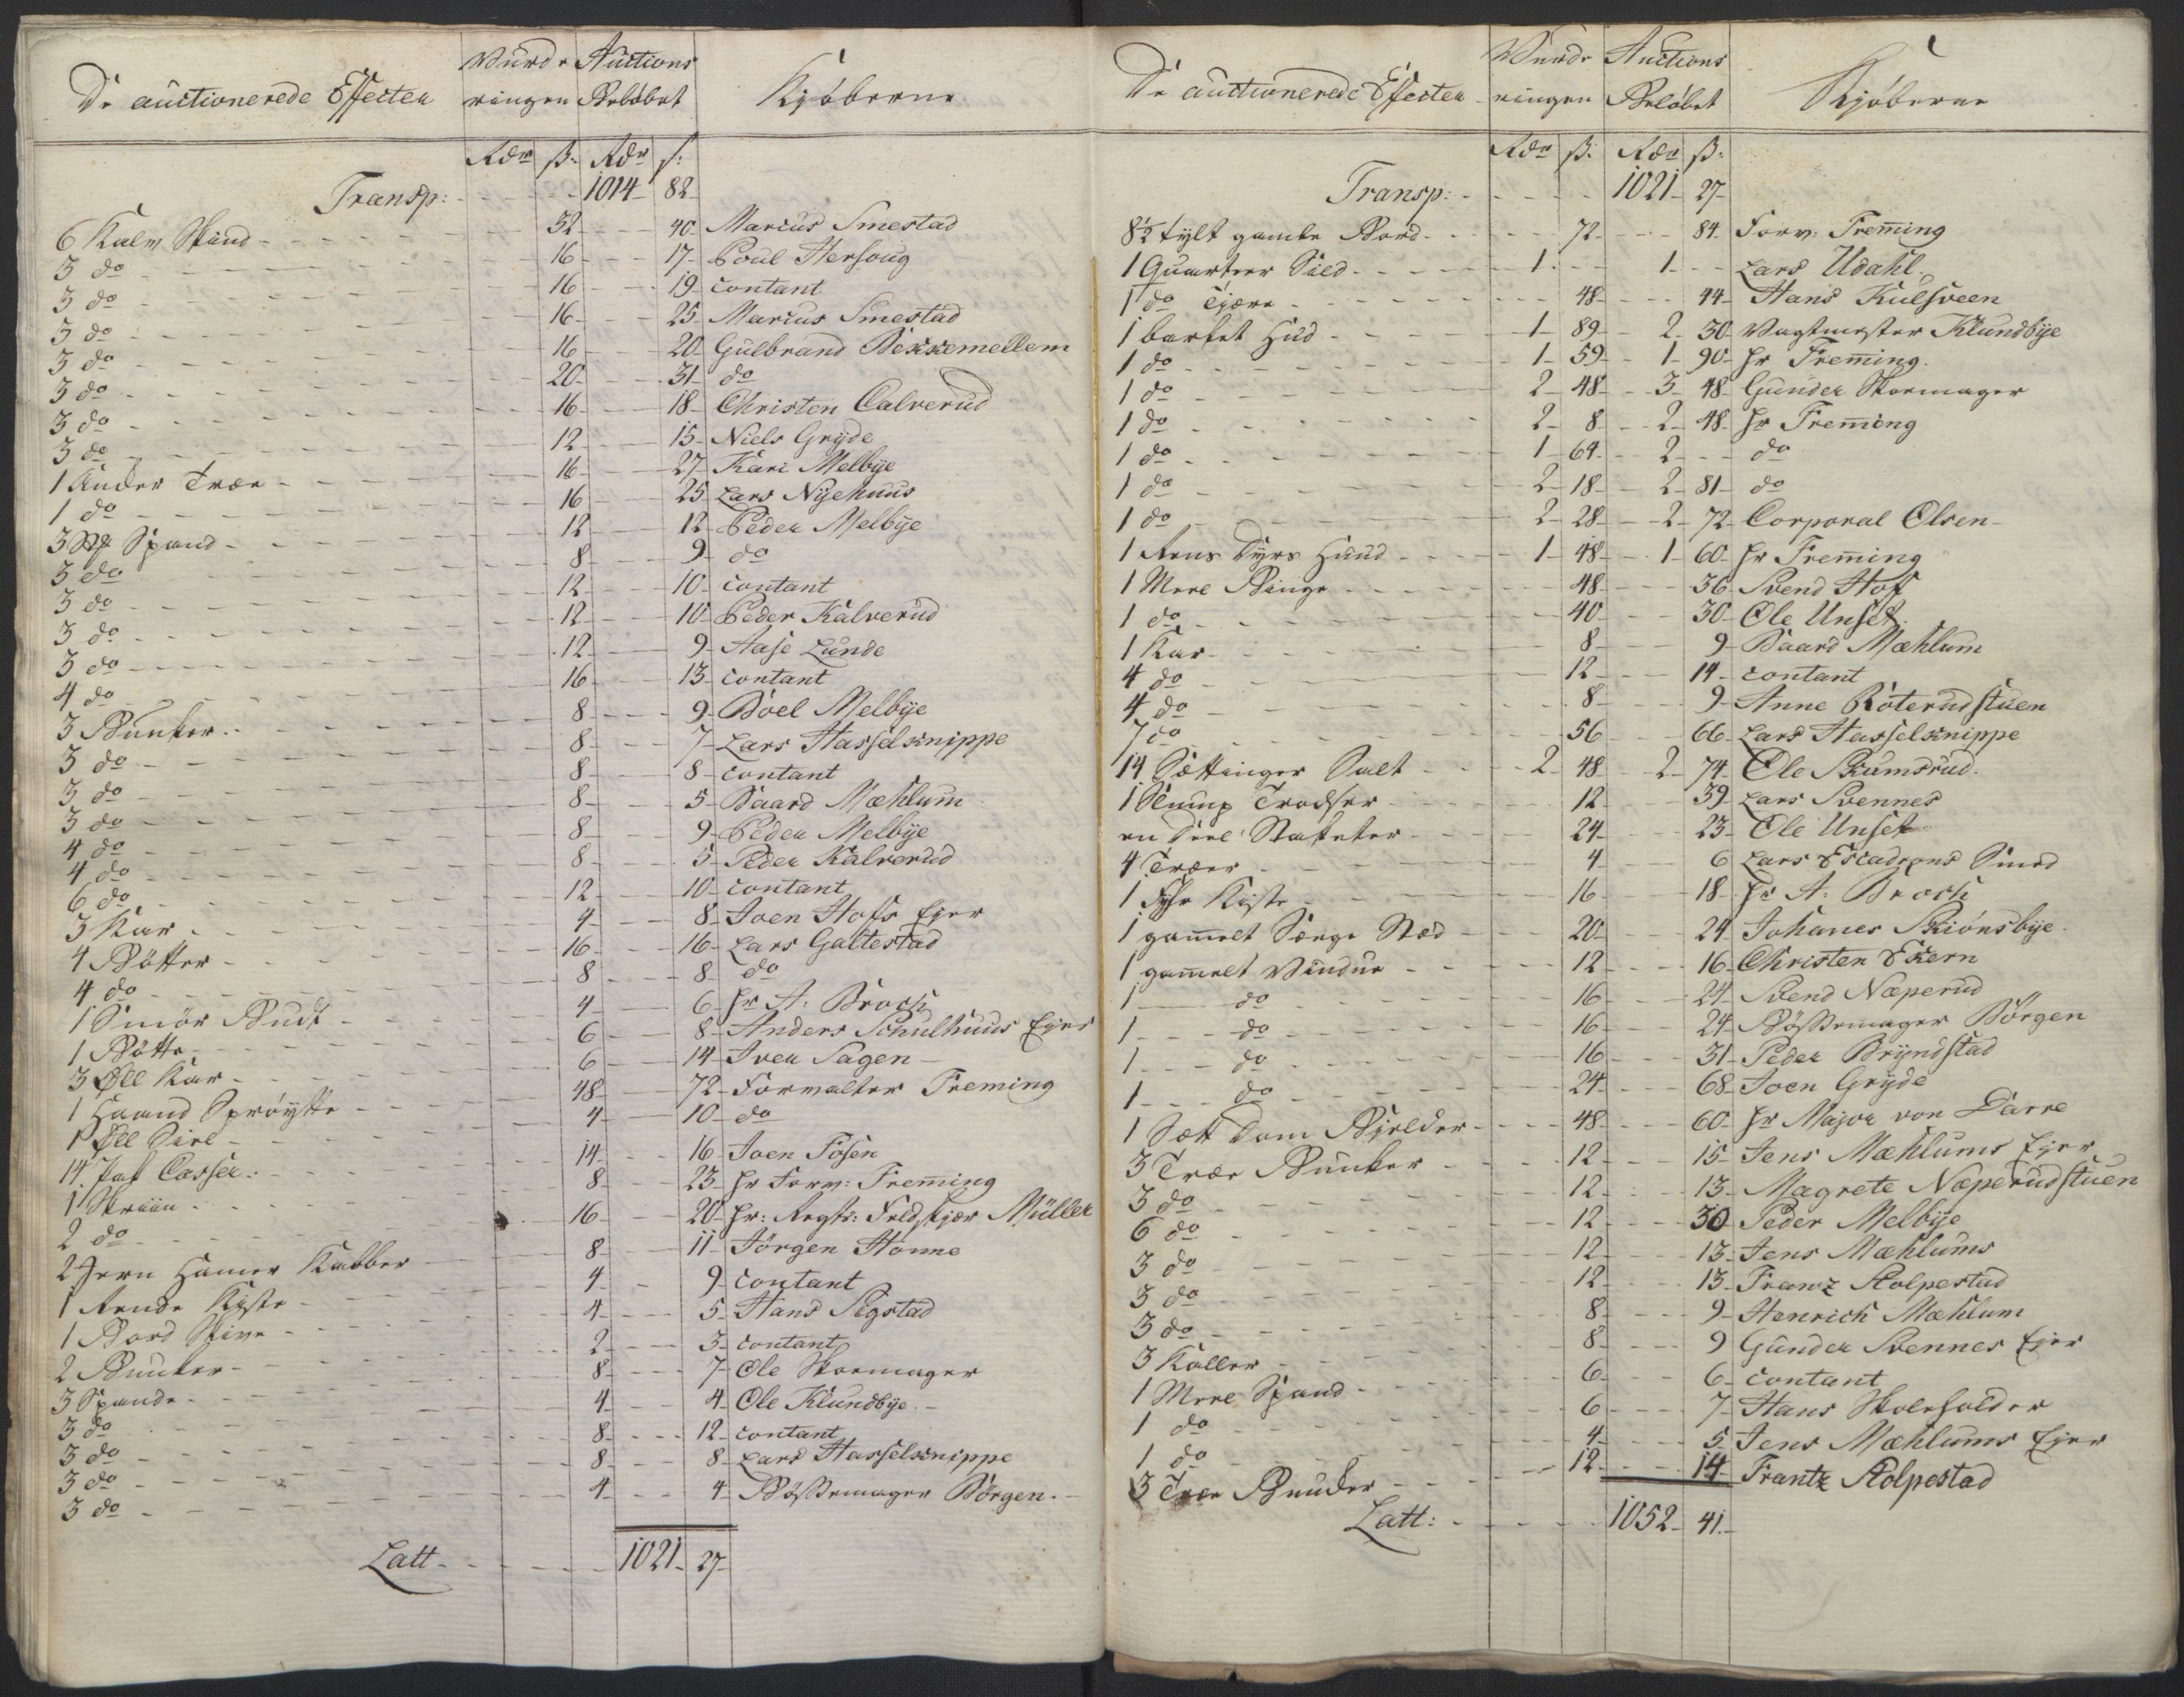 De auctionerede Effecter
Vurde
ringen
Auctions
Beløbet
Kjøberne
Rdr ß. Rdr ß:
Transp: 1014 82
6 Kalv Skind 32 40 Marcus Smestad
3 do 16 17 Poul Hersoug
3 do 16 19 contant
3 do 16 25 Marcus Smestad
3 do 16 20 Gulbrand Bekkemellem
3 do 20 31 do
3 do 16 18 Christen Calverud
3 do 12 15 Niels Gryde
1 Ander Træe 16 27 Kari Melbye
1 do 16 25 Lars Nyehuus
3 Spand 12 12 Peder Melbye
3 do 8 9 do
3 do 12 10 contant
3 do 12 10 Peder Kalverud
3 do 12 9 Aase Lunde
4 do 16 13 contant
3 Bunker 8 9 Boel Melbye
3 do 8 7 Lars Hasselknippe
3 do 8 8 contant
3 do 8 5 Baard Mæhlum
4 do 8 9 Peder Melbye
4 do 8 5 Peder Kalverud
6 do 12 10 contant
3 Kar 4 8 Joen Hofs Ejer
4 Bøtter 16 16 Lars Galtestad
4 do 8 8 do
1 Smør Budt 4 6 Hr A: Broch
1 Bøtte 6 8 Anders Schulhuus Ejer
3 Øll Kar 6 14 Iver Sagen
1 Haand Sprøytte 48 72 Forvalter Freming
1 Øll Siel 4 10 do
14 Casser 14 16 Joen Fosen
1 Skriin 8 23 Hr Forv: Freming
2 do 16 20 Hr: Regts: Feldskjær Müller
2 Jern Hamer Kabber 8 11 Jörgen Honne
1 Rende Kiste 4 9 contant
1 Bord Skive 4 5 Hans Sigstad
2 Bunker 2 3 contant
3 Spande 8 7 Ole Skoemager
3 do 4 4 Ole Klundbye
3 do 8 12 contant
3 do 8 8 Lars Hasselknippe
3 do 4 4 Bøssemager Börgen
Latt 1021 27
De auctionerede Effecter
Vurde
ringen
Auctions
Beløbet
Kjøberne
Rdr ß. Rdr ß:
Transp: 1021 27
8½ tylt gamle Bord 72 84 Forv: Freming
1 Quarteer Sild 1 1 Lars Udahl
1 do Tjære 48 44 Hans Kulsveen
1 barket Hud 1 89 2 30 Vagtmester Klundbye
1 do 1 59 1 90 Hr Freming
1 do 2 48 3 48 Gunder Skoemager
1 do 2 8 2 48 Hr Freming
1 do 1 64 2 do
1 do 2 18 2 81 do
1 do 2 28 2 72 Corporal Olsen
1 Rens Dyrs Huud 1 48 1 60 Hr Freming
1 Meel Binge 48 36 Svend Hof
1 do 40 30 Ole Unset
1 Kar 8 9 Baard Mæhlum
4 do 12 14 contant
4 do 8 9 Anne Röterudstuen
7 do 56 66 Lars Hasselknippe
14 Sættinger Salt 2 48 2 74 Ole Skumsrud
1 Slump Trodser 12 39 Lars Svennes
en Deel Staketer 24 23 Ole Unset
4 Træer 4 6 Lars Escadrons Smed
1 Kiste 16 18 Hr A: Broch
1 gamelt Senge Sted 20 24 Johanes Skiönsbye
1 gamelt Vindue 12 16 Christen Ekern
1 do 16 24 Svend Næperud
1 do 16 24 Bøssemager Börgen
1 do 16 31 Peder Bryndstad
1 do 24 68 Joen Gryde
1 Sæt Dom Bjelder 48 60 Hr Major von Darre
3 Træe Bunker 12 15 Jens Mæhlums Ejer
3 do 12 13 Magrete Næperudstuen
6 do 12 30 Peder Melbye
3 do 12 13 Jens Mæhlums
3 do 12 13 Franz Stolpestad
3 do 8 9 Henrich Mæhlum
3 Koller 8 9 Gunder Svennes Ejer
1 Meel Spand 6 6 contant
1 do 6 7 Hans Skoleholder
1 do 4 5 Jens Mæhlums Ejer
3 Træe Bunker 12 14 Frantz Stolpestad
Latt: 1052 41